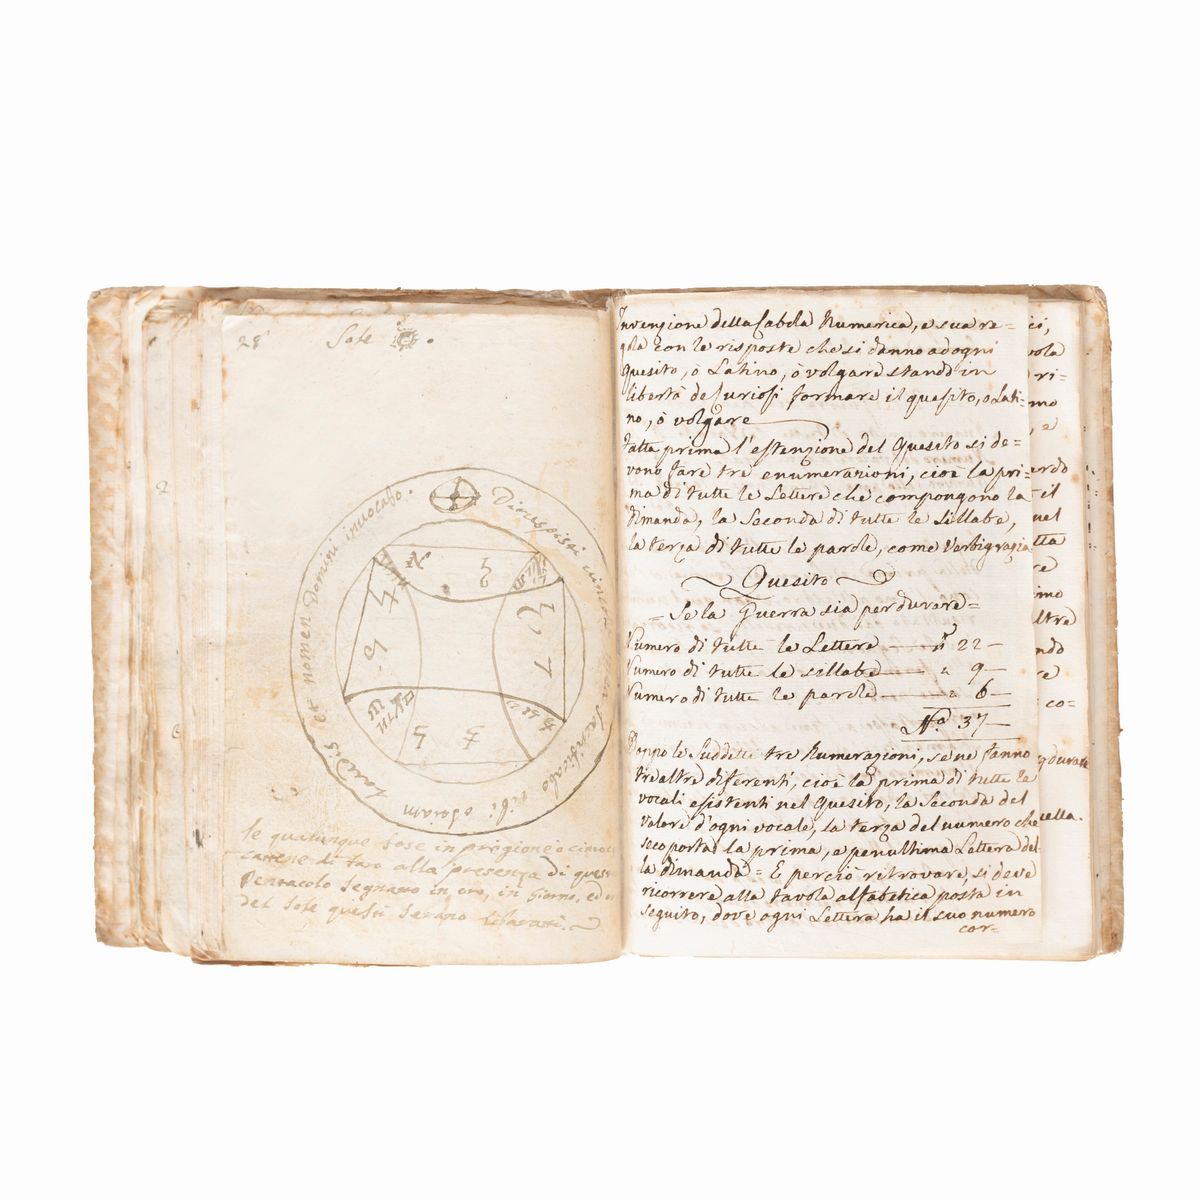 28
Sole
Dirupisti vincola mea tibi sacrificabo ostiam laudis et nomen Domini invocabo.
se qualunque fose in prigione o
catene di faro alla presenza di questo
Pentacolo segnato in oro, in Giorno, ed
del Sole questi serano liberati.
Invenzione della Cabola Numerica, e sua re=
gola con le risposte che si danno ad ogni
Quesito, ò Latino, ò volgare stando in
libertà de Curiosi formare il quesito, o Lati=
no, ò volgare
fatta prima l'estenzione del Quesito si de=
vono fare tré enumerazioni, cioè la pri=
ma di tutte le Lettere che compongono la
dimanda, la Seconda di tutte le Sillabe,
la terza di tutte le parole, come Verbigrazia
Quesito
= Se la Guerra sia per durare =
Numero di tutte le Lettere n° 22 —
Numero di tutte le sillabe — " 9 —
Numero di tutte le parole — " 6 —
N° 37 —
Doppo le Suddette tre Numerazioni, se ne fanno
tre altre diferenti, cioè la prima di tutte le
vocali esistenti nel Quesito, la Seconda del
valore d'ogni vocale, la terza del numero che
seco porta la prima, e penultima Lettera del=
la dimanda = E perciò ritrovare si deve
ricorrere alla tavola alfabetica posta in
seguito, dove ogni Lettera ha il suo numero
cor=